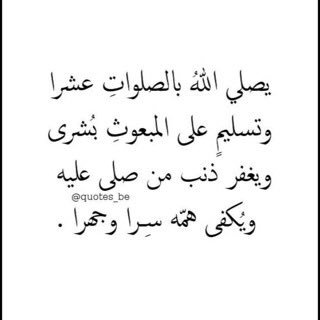 يصلي اللهُ بالصلواتِ عشرا
وتسليمٍ على المبعوثِ بُشرى
ويغفر ذنب من صلى عليه
@quotes_be
ويُكفى همّه سِرا وجهرا .